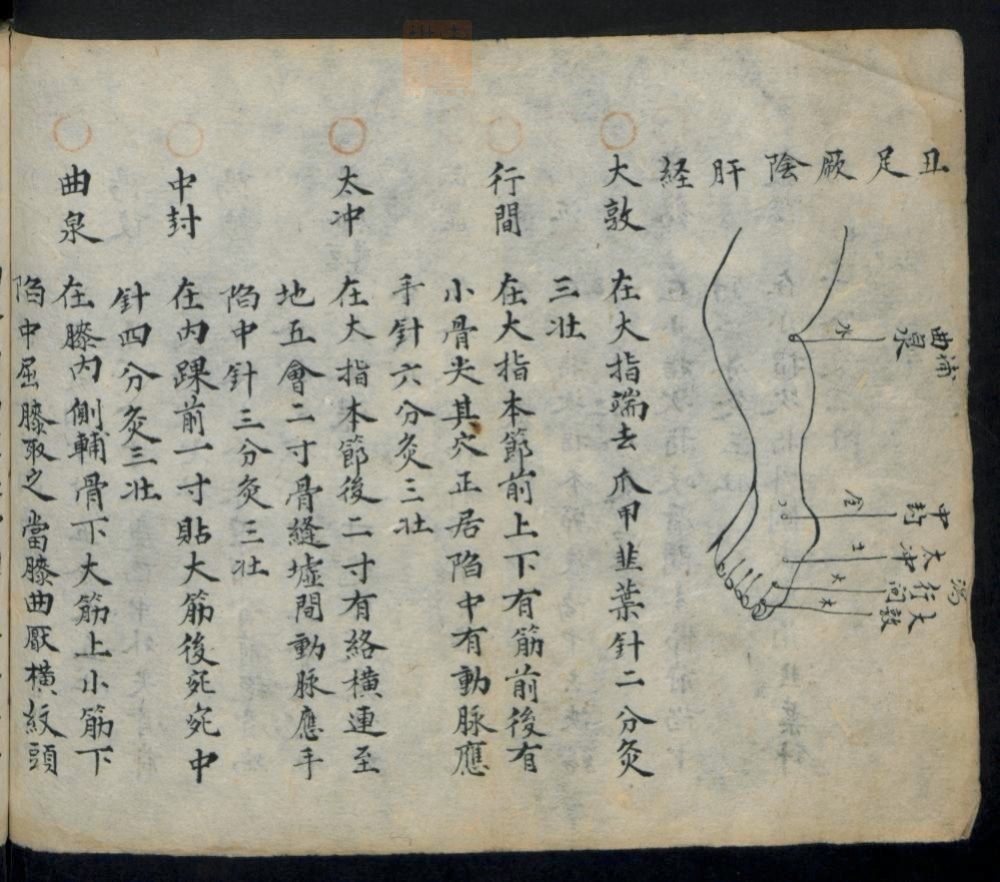 丑足厥陰肝経
曲泉
補
水
中封
金
太冲
土
行間
火
瀉
大敦
木
大敦 在大指端去爪甲韭葉針二分灸
三壮
行間 在大指本節前上下有筋前後有
小骨尖其穴正居陷中有動脉應
手針六分灸三壮
太冲 在大指本節後二寸有絡横連至
地五會二寸骨縫墟間動脉應手
陷中針三分灸三壮
中封 在内踝前一寸貼大筋後宛宛中
針四分灸三壮
曲泉 在膝内側輔骨下大筋上小筋下
陷中屈膝取之當膝曲厭横紋頭